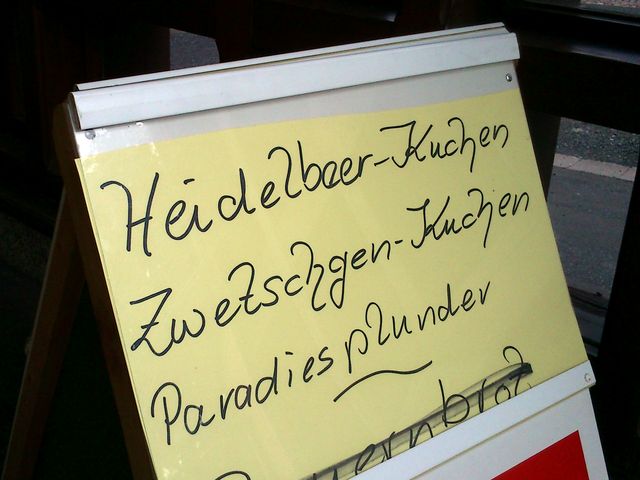 Heidelbeer-Kuchen
Zwetschgen-Kuchen
Paradiesplunder
Bauernbrot